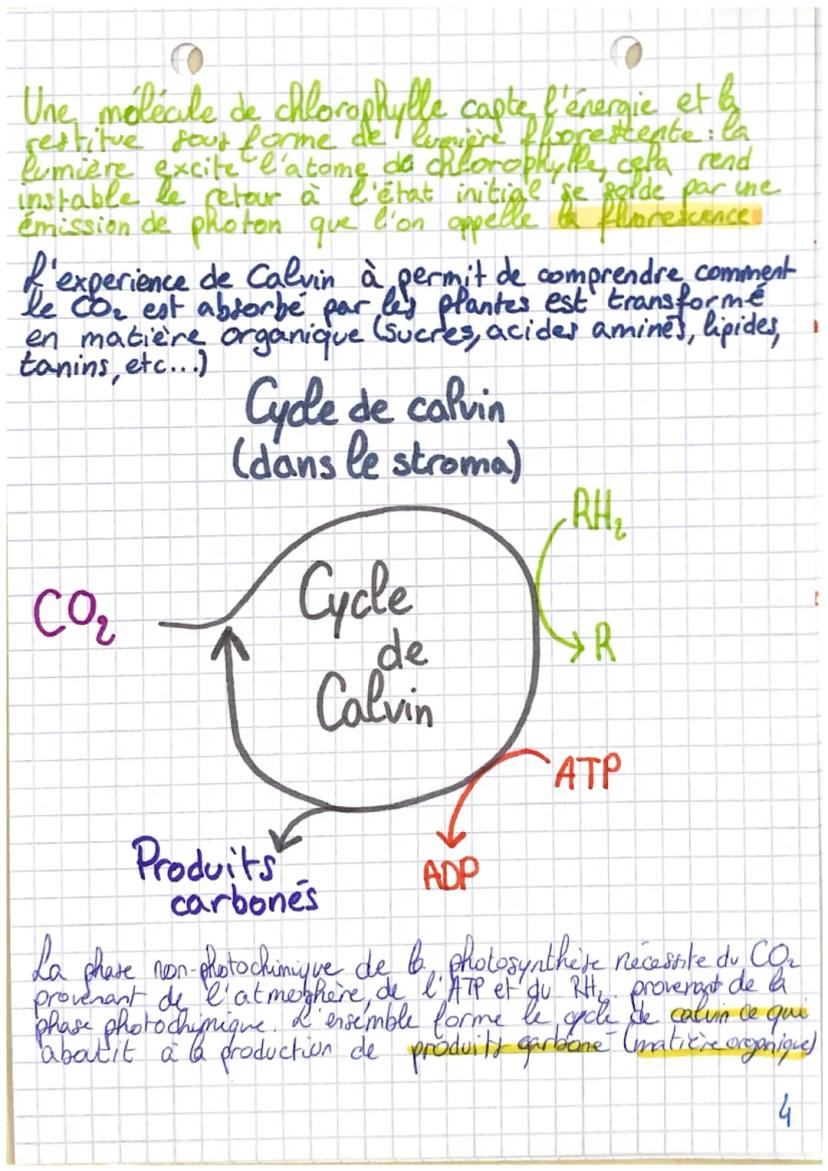 Une molécule de chlorophylle capte l'énergie et la
restitue sous forme de lumière fluorestente : la
lumière excite l'atome de chlorophylle, cela rend
instable le retour à l'état initial se solde par une
émission de photon que l'on appelle la fluorescence
L'experience de Calvin à permit de comprendre comment
le CO₂ est absorbé par les plantes est transformé
en matière organique (sucres, acides aminés, lipides,
tanins, etc...)
Cycle de calvin
(dans le stroma)
RH₂
CO₂
Cycle
de
Calvin
R
ATP
Produits
carbonés
ADP
La phase non-photochimique de la photosynthèse nécessite du CO₂
provenant de l'atmosphère, de l'ATP et du RH₂ provenant de la
phase photochimique. L'ensemble forme le cycle de calvin ce qui
aboutit à la production de produits carboné (matière organique)
4